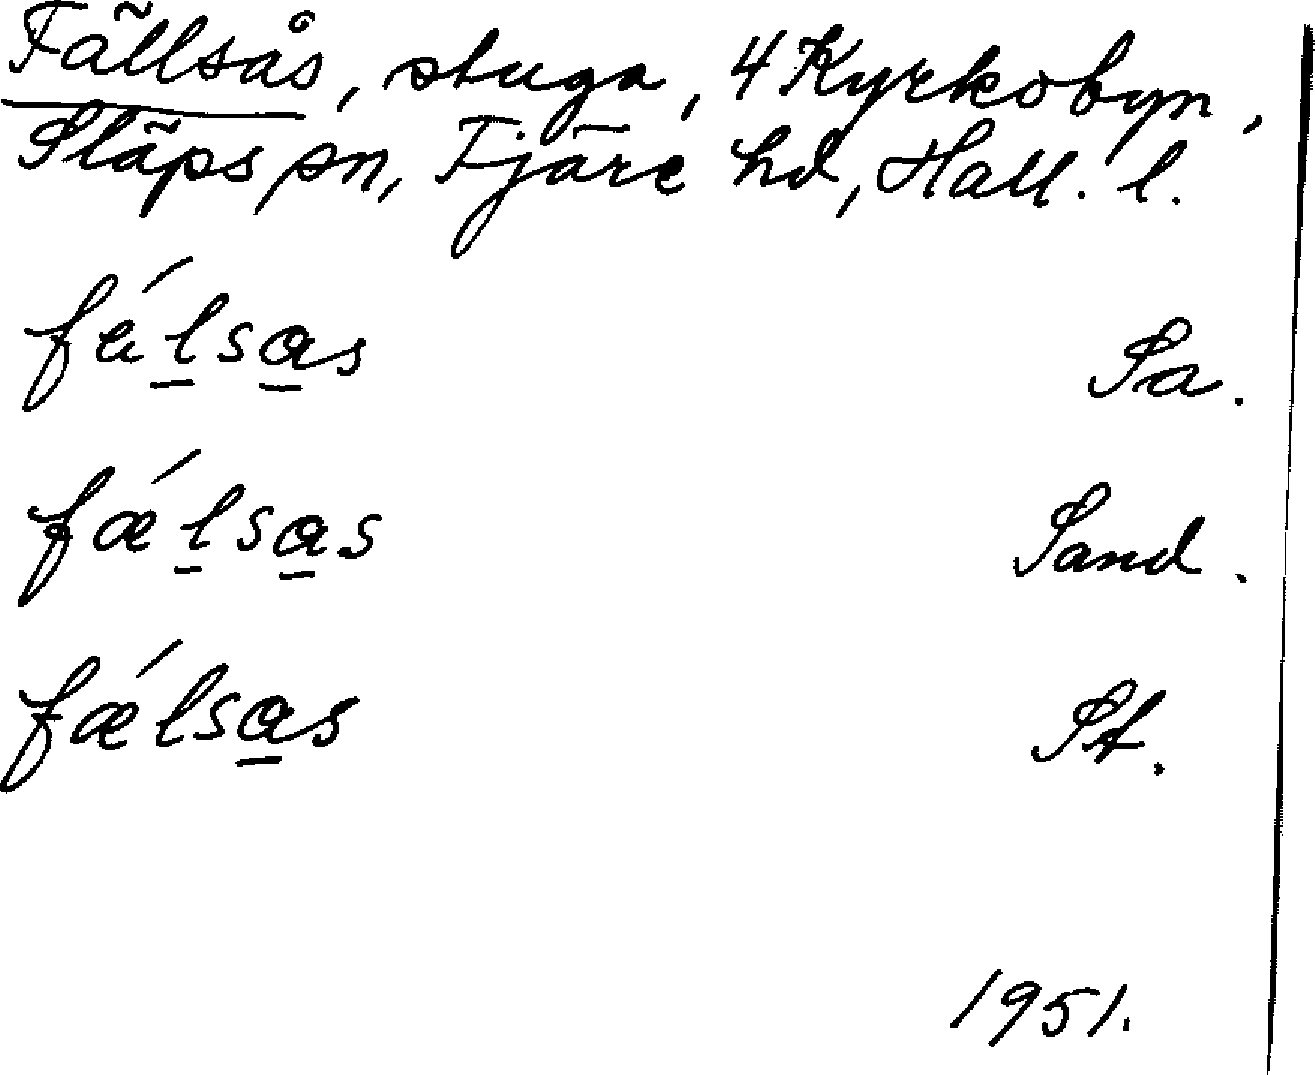 Fällsås, stuga, 4 Kyrkobyn,
Släps sn, Fjäre hd, Hall. l.
fä́l̲sa̲s Sa.
fǽl̲sa̲s Sand.
fǽlsa̲s St.
1951.